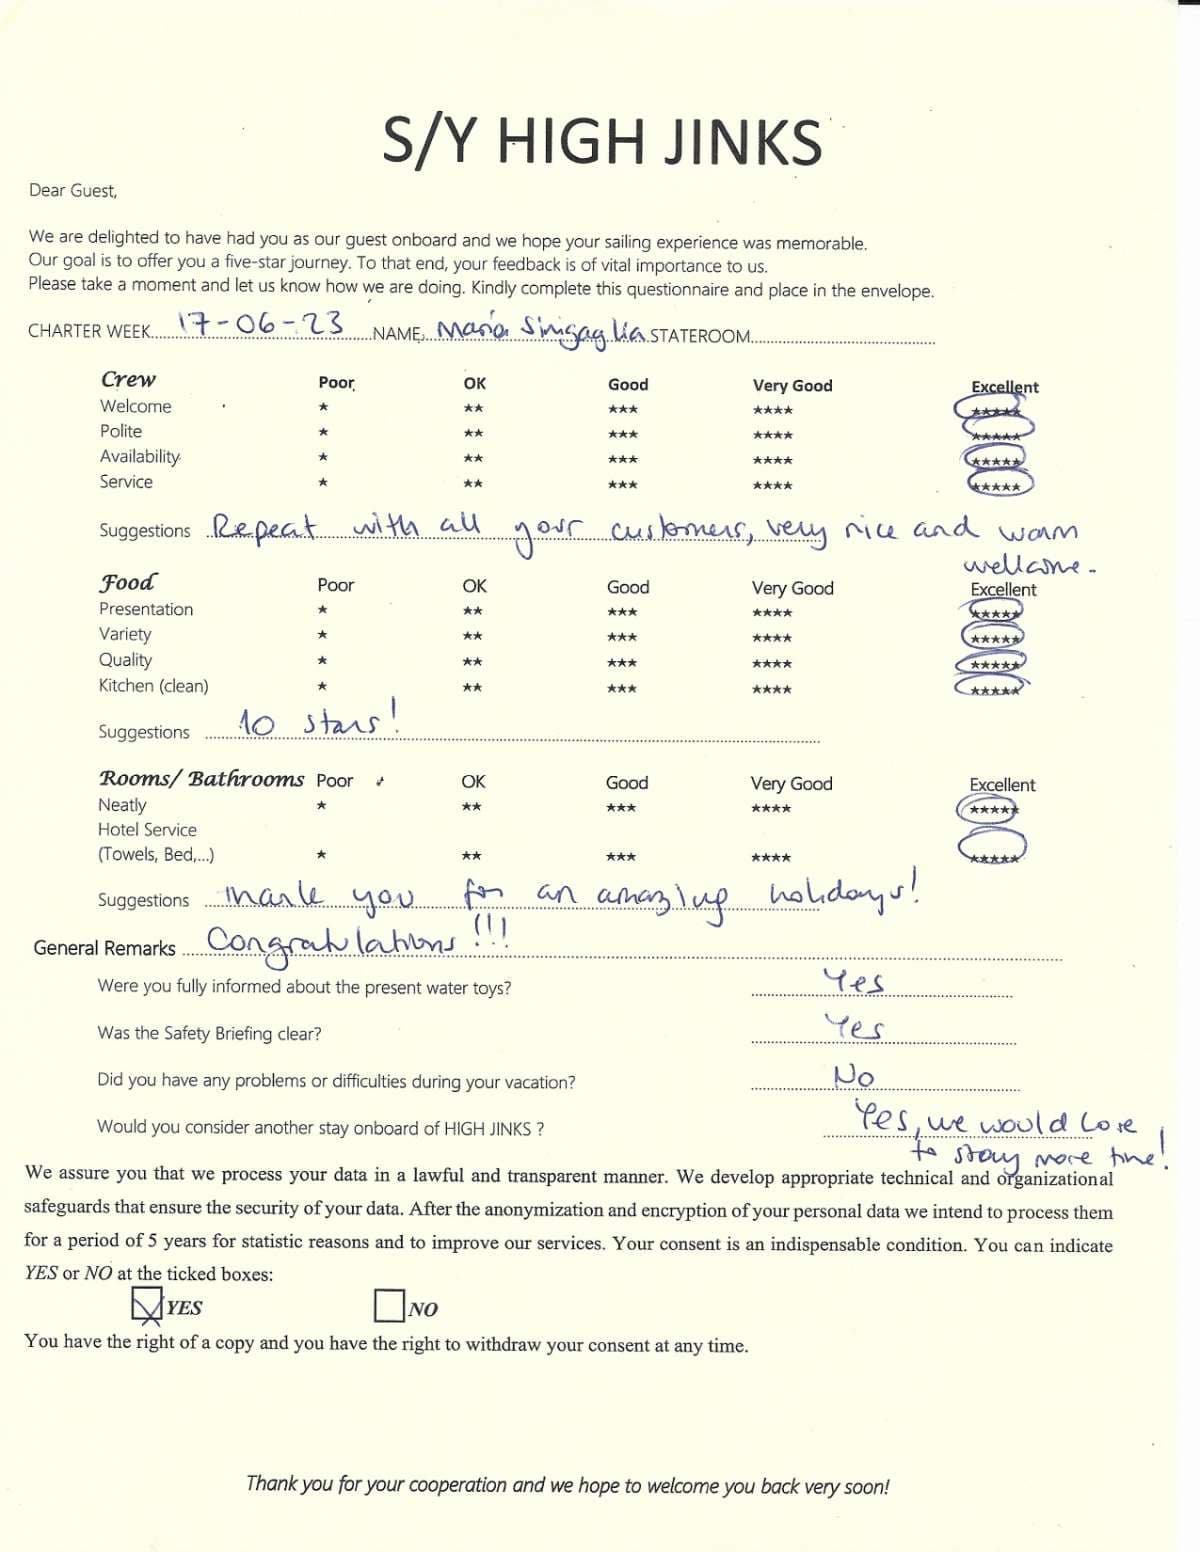 S/Y HIGH JINKS
Dear Guest,
We are delighted to have had you as our guest onboard and we hope your sailing experience was memorable.
Our goal is to offer you a five-star journey. To that end, your feedback is of vital importance to us.
Please take a moment and let us know how we are doing. Kindly complete this questionnaire and place in the envelope.
CHARTER WEEK 17-06-23 NAME, María Sinigaglia STATEROOM
Crew Poor OK Good Very Good Excellent
Welcome ★ ★★ ★★★ ★★★★ ★★★★★
Polite ★ ★★ ★★★ ★★★★ ★★★★★
Availability ★ ★★ ★★★ ★★★★ ★★★★★
Service ★ ★★ ★★★ ★★★★ ★★★★★
Suggestions Repeat with all your customers, very nice and warm
wellcome.
Food Poor OK Good Very Good Excellent
Presentation ★ ★★ ★★★ ★★★★ ★★★★★
Variety ★ ★★ ★★★ ★★★★ ★★★★★
Quality ★ ★★ ★★★ ★★★★ ★★★★★
Kitchen (clean) ★ ★★ ★★★ ★★★★ ★★★★★
Suggestions 10 stars!
Rooms/ Bathrooms Poor OK Good Very Good Excellent
Neatly ★ ★★ ★★★ ★★★★ ★★★★★
Hotel Service
(Towels, Bed,...) ★ ★★ ★★★ ★★★★ ★★★★★
Suggestions Thank you for an amazing holidays!
General Remarks Congratulations!!!
Were you fully informed about the present water toys? Yes
Was the Safety Briefing clear? Yes
Did you have any problems or difficulties during your vacation? No
Would you consider another stay onboard of HIGH JINKS ? Yes, we would love
to stay more time!
We assure you that we process your data in a lawful and transparent manner. We develop appropriate technical and organizational
safeguards that ensure the security of your data. After the anonymization and encryption of your personal data we intend to process them
for a period of 5 years for statistic reasons and to improve our services. Your consent is an indispensable condition. You can indicate
YES or NO at the ticked boxes:
YES NO
You have the right of a copy and you have the right to withdraw your consent at any time.
Thank you for your cooperation and we hope to welcome you back very soon!